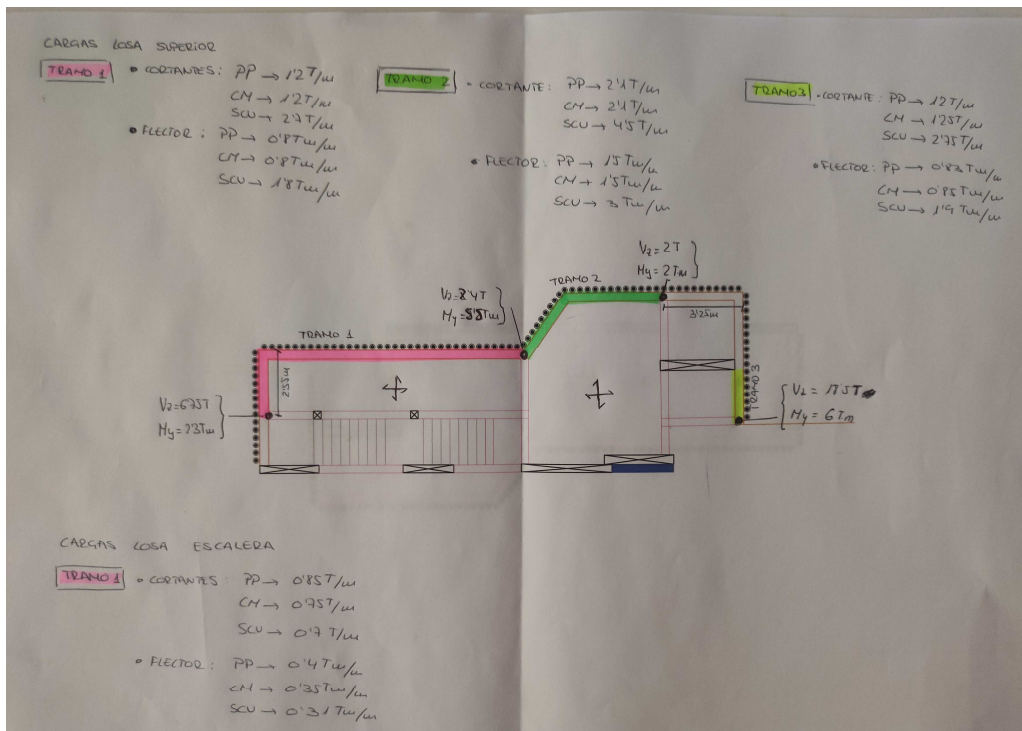 CARGAS LOSA SUPERIOR
TRAMO 1
• CORTANTES: PP → 1'2 T/m
CM → 1'2 T/m
SCU → 2'7 T/m
• FLECTOR: PP → 0'8 Tm/m
CM → 0'8 Tm/m
SCU → 1'8 Tm/m
TRAMO 2
- CORTANTE: PP → 2'1 T/m
CM → 2'1 T/m
SCU → 4'5 T/m
• FLECTOR: PP → 1'5 Tm/m
CM → 1'5 Tm/m
SCU → 3 Tm/m
TRAMO 3
• CORTANTE: PP → 1'2 T/m
CM → 1'25 T/m
SCU → 2'75 T/m
• FLECTOR: PP → 0'83 Tm/m
CM → 0'85 Tm/m
SCU → 1'9 Tm/m
Vz = 2T
My = 2Tm
TRAMO 2
My = 5'5Tm
3'25m
TRAMO 1
2'55m
TRAMO 3
Vz = 6'75T
My = 2'3Tm
Vz = 17'5T
My = 6Tm
CARGAS LOSA ESCALERA
TRAMO 1
• CORTANTES: PP → 0'85 T/m
CM → 0'75 T/m
SCU → 0'7 T/m
• FLECTOR: PP → 0'4 Tm/m
CM → 0'35 Tm/m
SCU → 0'31 Tm/m